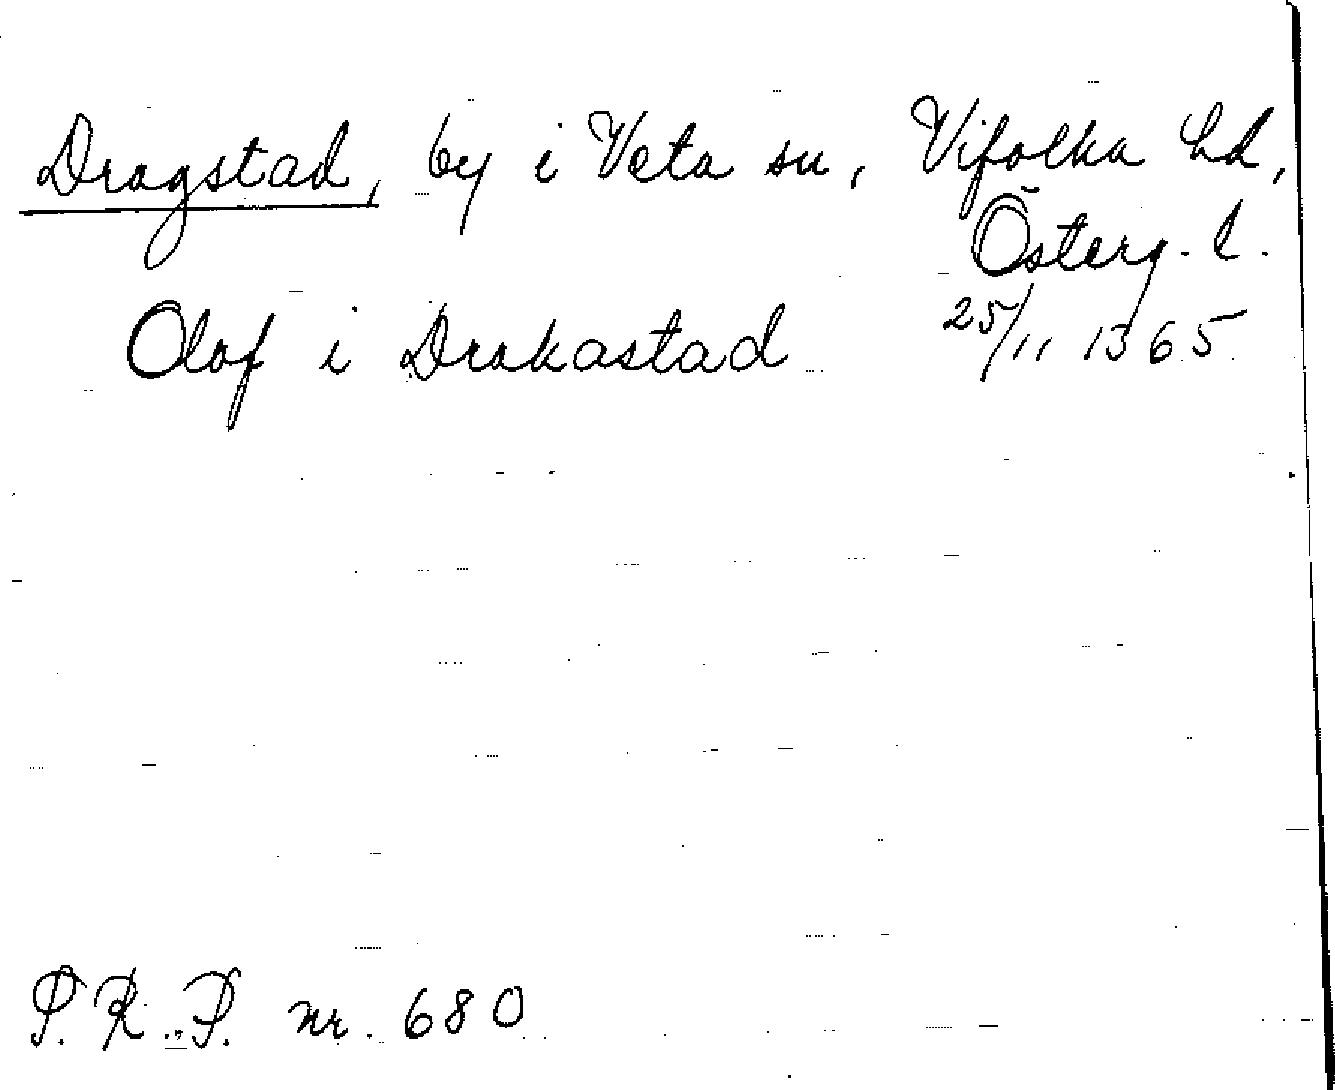 Dragstad, by i Veta sn, Vifolka hd,
Österg. l.
Olof i Drakastad 25/11 1365
P. R. P. nr. 680